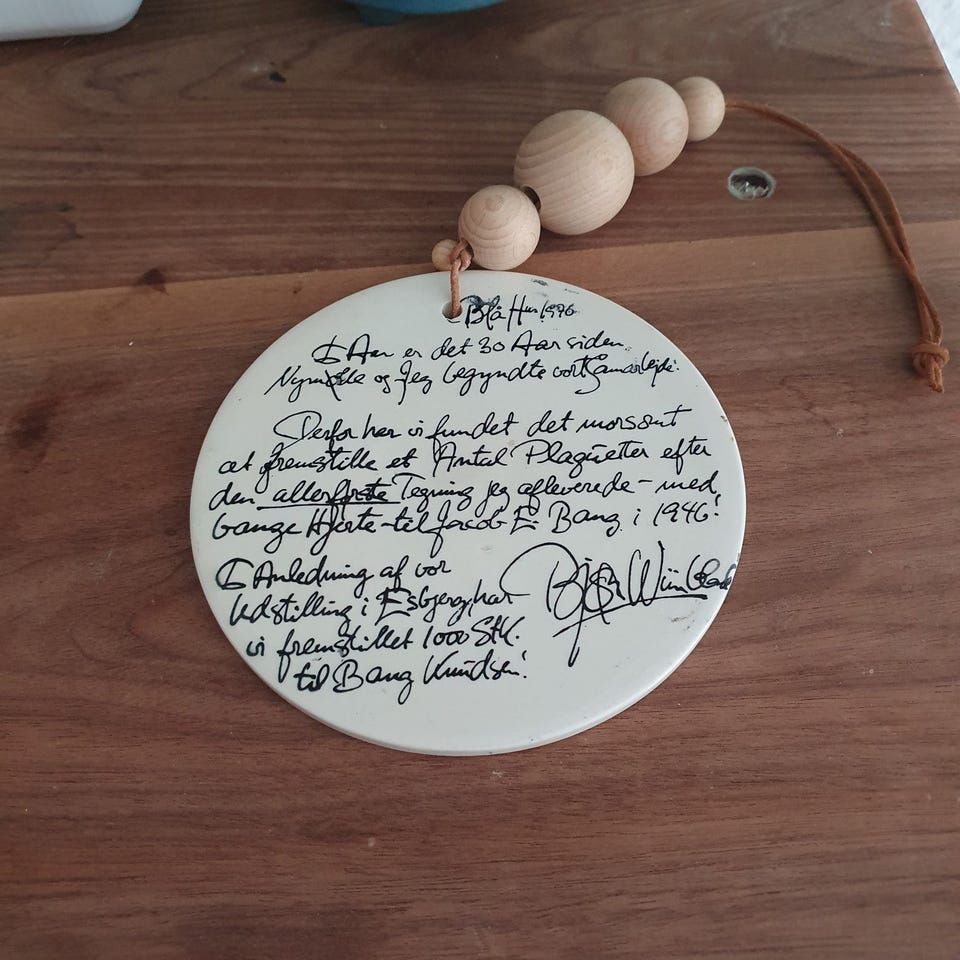 Blå Hus 1976
I Aar er det 30 Aar siden
Nymølle og Jeg begyndte vort Samarbejde.
Derfor har vi fundet det morsomt
at fremstille et Antal Plaquetter efter
den allerførste Tegning jeg afleverede - med
bange Hjerte - til Jacob E. Bang i 1946!
I Anledning af vor
Udstilling i Esbjerg, har
vi fremstillet 1000 Stk.
til Bang Knudsen!
Bjørn Wiinblad